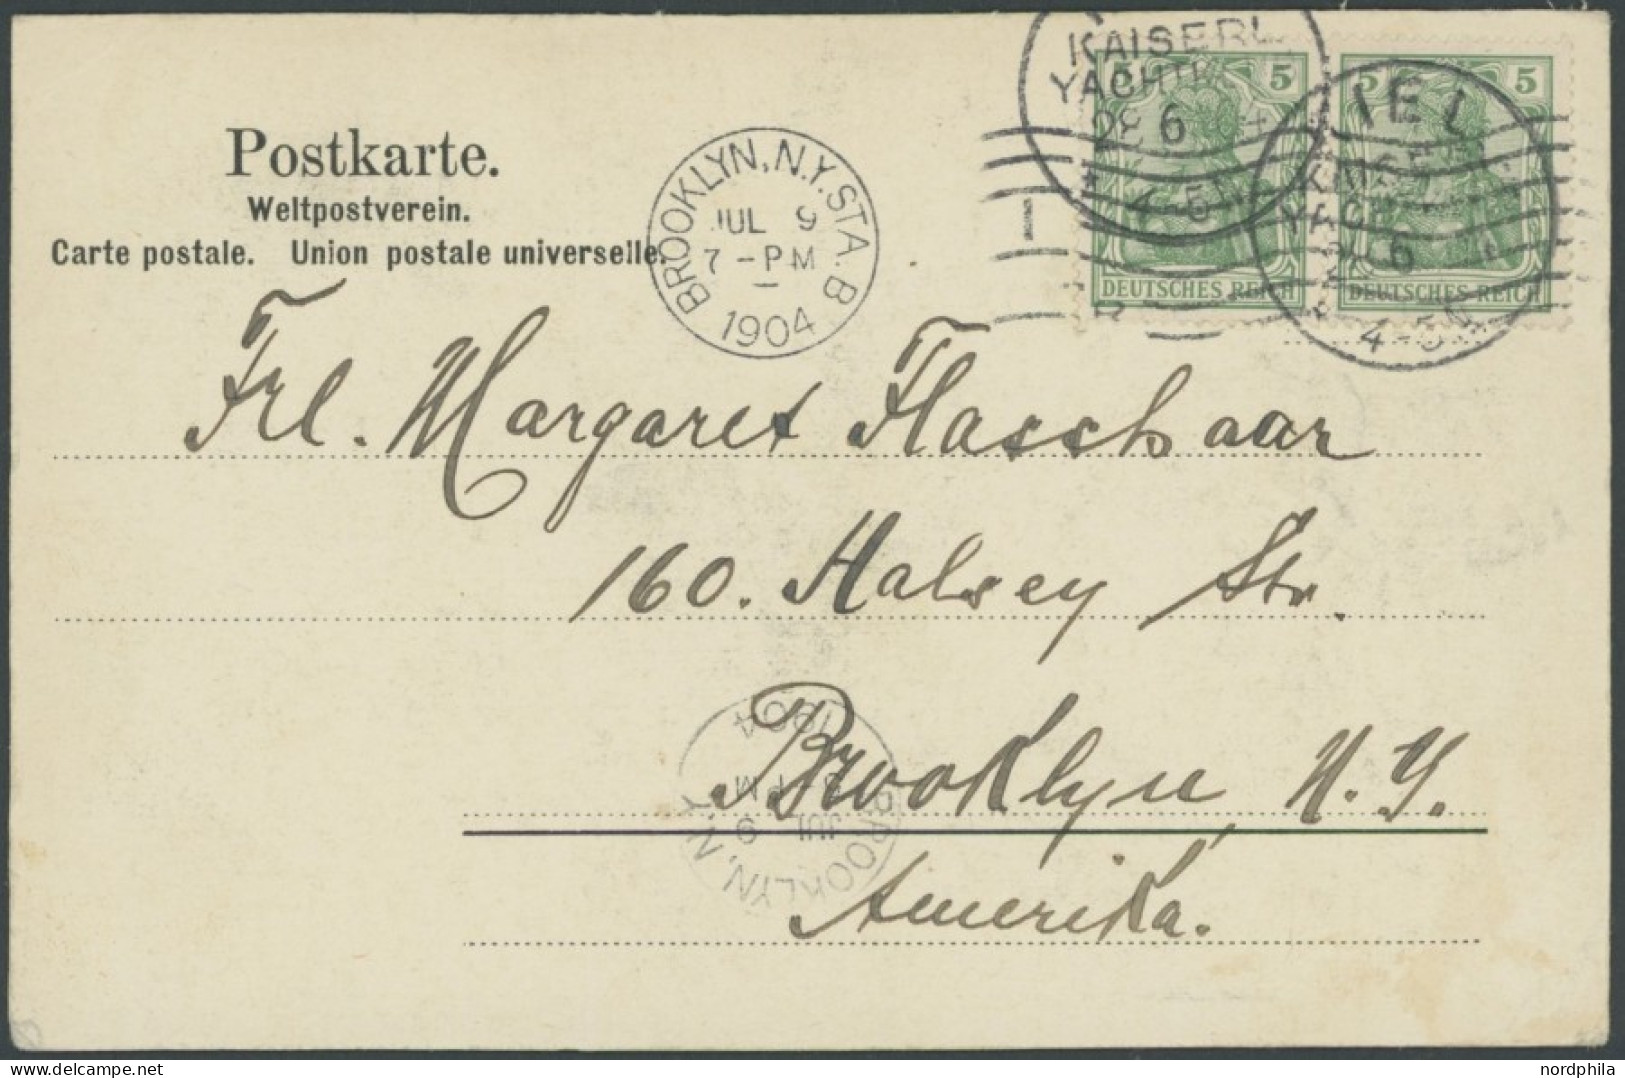 Postkarte.
Weltpostverein.
Carte postale. Union postale universelle.
BROOKLYN, N.Y. STA. B
JUL 9
7 - PM
1904
KAISERL
6
4-5
5 5
DEUTSCHES REICH
5 5
6
DEUTSCHES REICH
Frl. Margaret Flasshaar
160. Halsey Str.
Brooklyn N. Y.
Amerika.
BROOKLYN, N.Y.
JUL 9
PM
1904
© nordphila